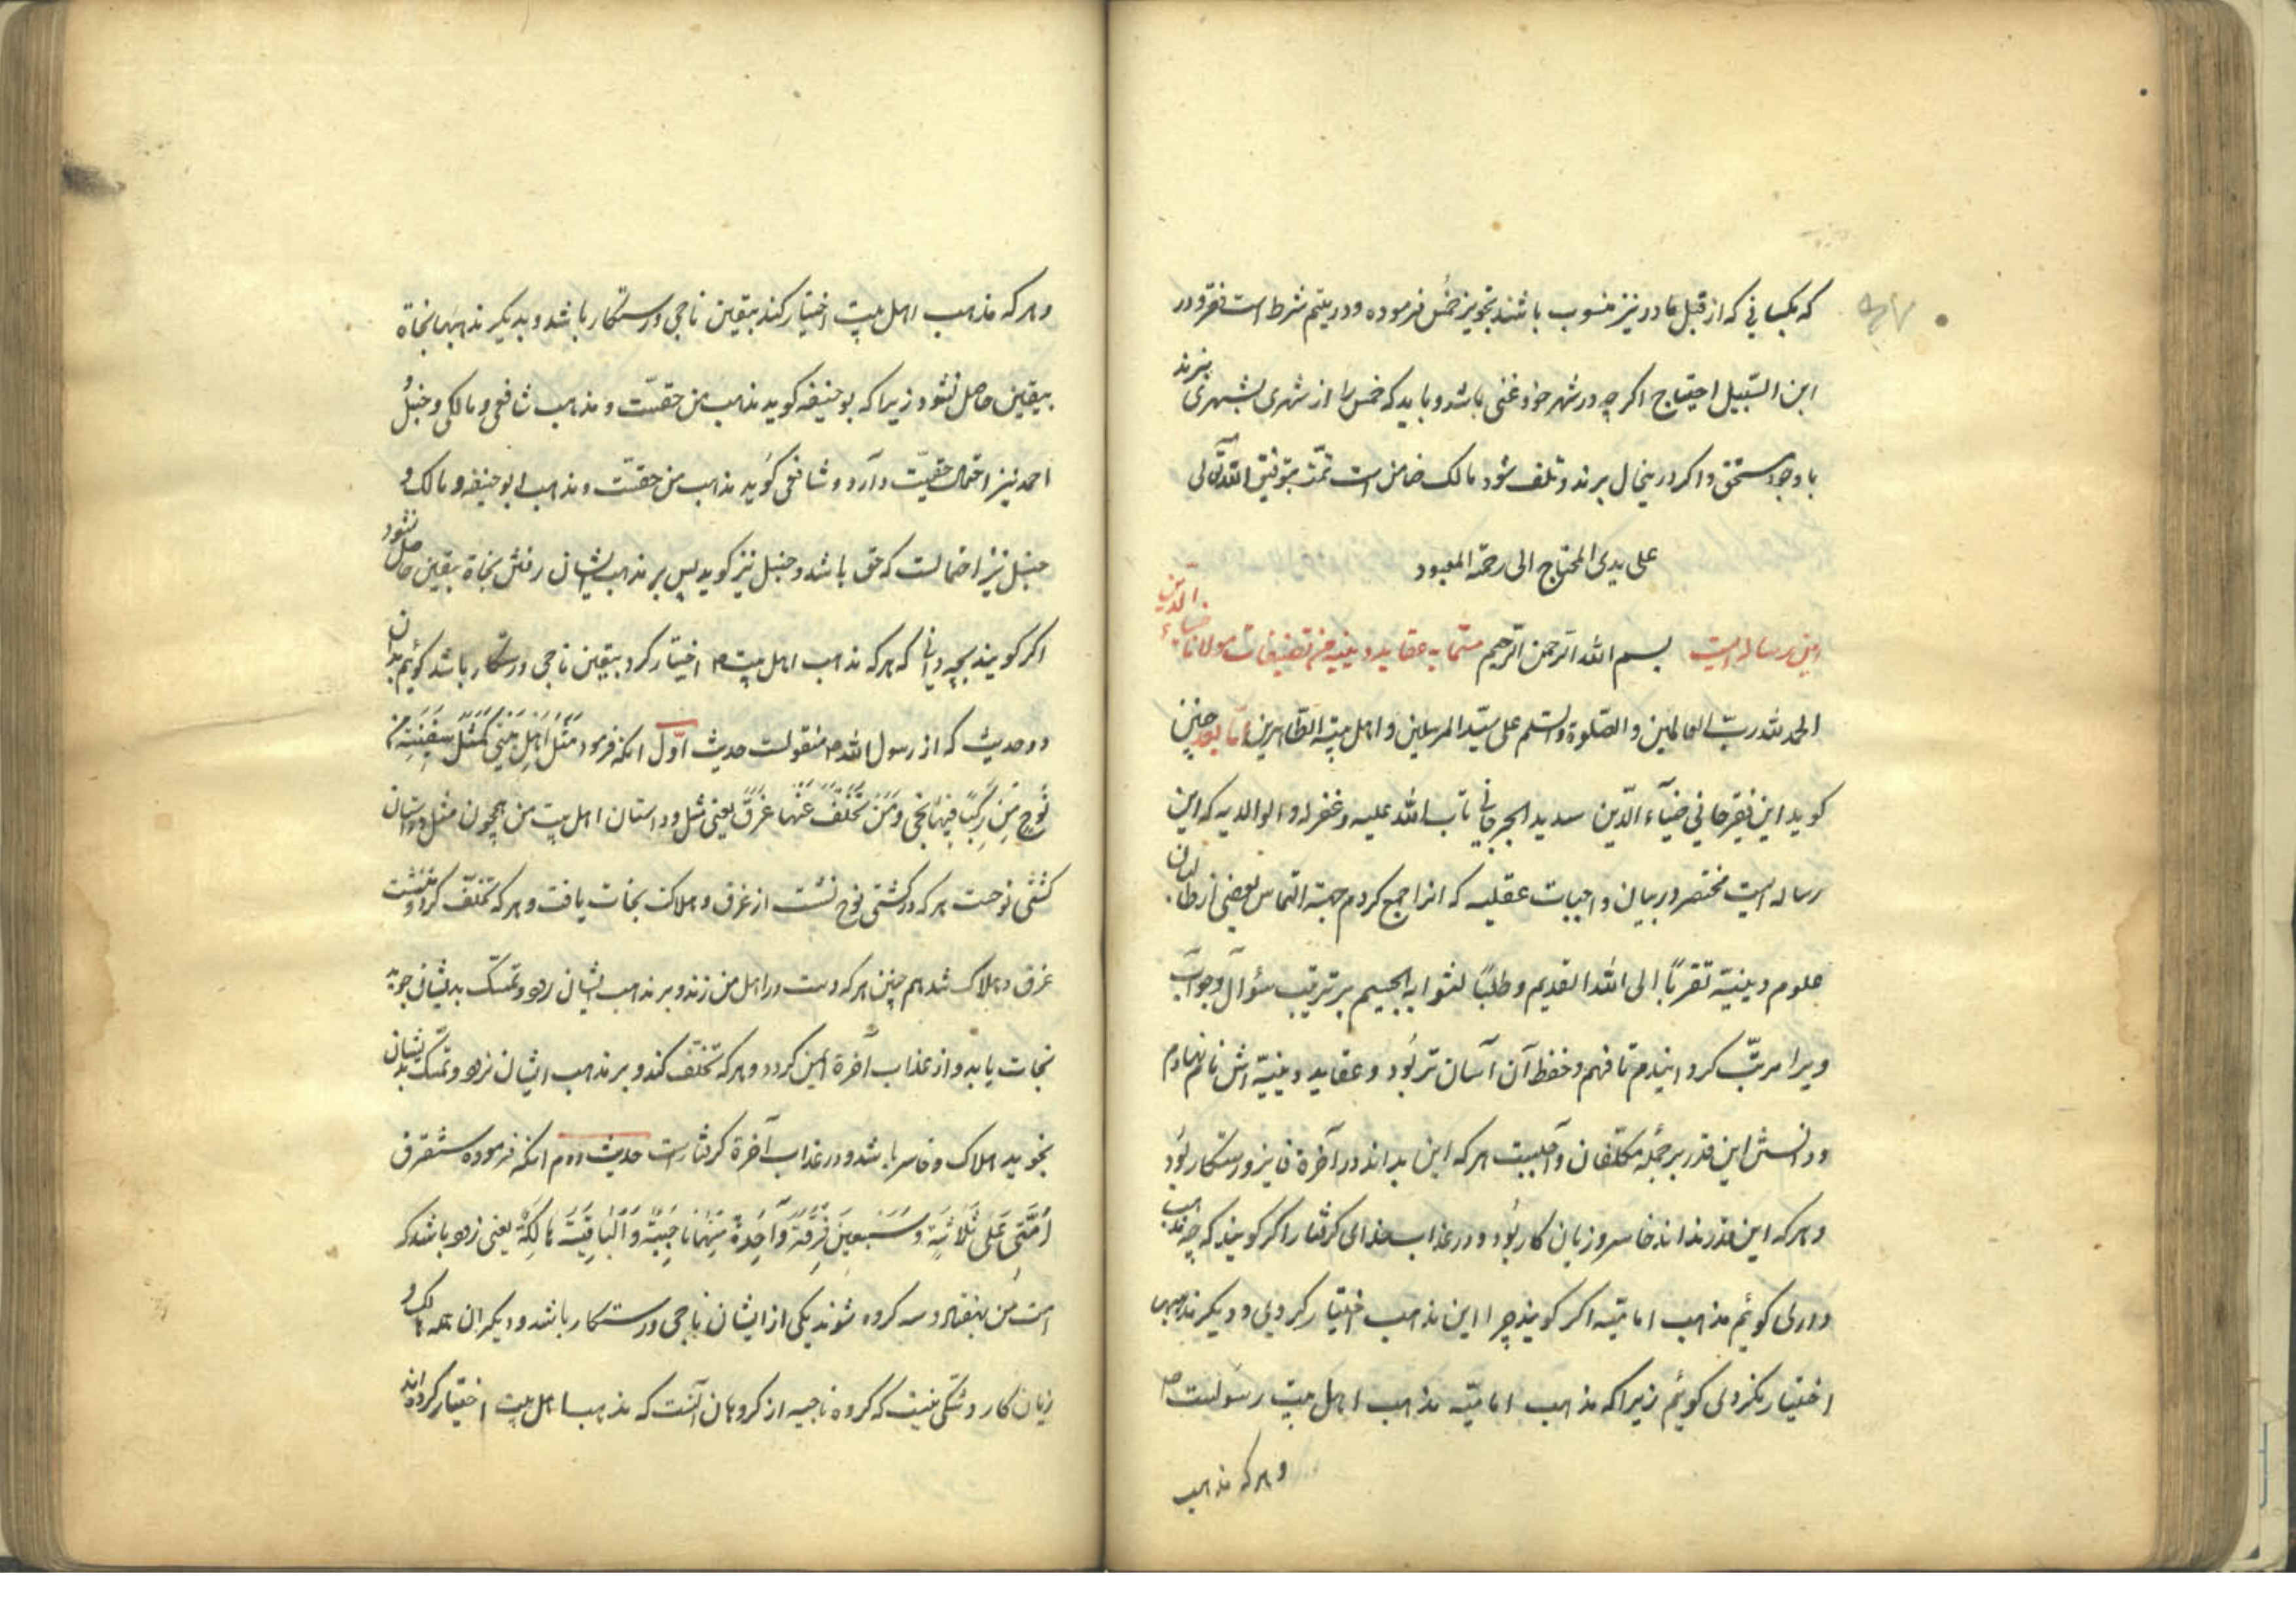 که بکسانی که از قبل مادر نیز منسوب باشند تجویز خمس فرموده و در یتیم شرط است فقر و در
ابن السّبیل احتیاج اگر چه در شهر خود غنی باشد و باید که خمس را از شهری بشهری نبرند
با وجود مستحق و اگر درینحال برند و تلف شود مالک ضامن است تمّت بتوفیق الله تعالی
علی یدی المحتاج الی رحمة المعبود
این رساله ایست بسم الله الرّحمن الرّحیم مسمّا به عقاید دینیه من تصنیفات مولانا ضیاء الدّین
الحمد لله ربّ العالمین و الصّلوة و السّلم علی سیّد المرسلین و اهل بیته الطّاهرین امّا بعد چنین
کوید این فقیر جانی ضیآء الدّین سدید الجرجانی تاب الله علیه و غفر له و لوالدیه که این
رساله ایست مختصر در بیان واجبات عقلیه که انرا جمع کردم جهة التماس بعضی از طالبان
علوم دینیّه تقرباً الی الله القدیم و طلباً لثوابه الجسیم بر ترتیب سؤآل و جوآب
و یرا مرتّب کردانیدم تا فهم و حفظ آن آسان تر بُود و عقاید دینیّه اش نام نهادم
و دانستن این قدر بر جمله مکلّفان وآجبیت هر که این بداند در آخرة فایز و رستکار بُود
و هر که این قدر نداند خاسر و زیان کار بُود و در عذاب خدای کرفتار اکر کویند که چه مذهب
داری کوئیم مذهب امامیّه اکر کویند چرا این مذهب اختیار کردی و دیکر مذهبها
اختیار نکردی کوئیم زیرا که مذهب امامیّه مذهب اهل بیت رسولست ص
و هر که مذهب
و هر که مذهب اهل بیت اختیار کند بیقین ناجی و رستکار باشد و بدیکر مذهبها نجاة
بیقین حاصل نشود زیرا که بوحنیفه کوید مذهب من حقسّت و مذهب شافعی و مالکی و حنبل و
احمد نیز احتمال حقیّت دآرد و شافعی کوید مذهب من حقسّت و مذهب ابو حنیفه و مالک و
حنبل نیز احتمالست که حق باشد و حنبل نیز کوید پس بر مذهب ایشان رفتن نجاة بیقین حاصل نشود
اکر کویند بچه دانی که هر که مذهب اهل بیت ع اختیار کرد بیقین ناجی و رستکار باشد کوئیم بدان
دو حدیث که از رسول الله ص منقولست حدیث اوّل انکه فرمود مَثَلُ اَهلِ بَیتی کَمَثَلِ سَفینَةِ
نُوحٍ مَن رَکِبَ فیها نَجی وَ مَن تَخَلَّفَ عَنها غَرَقَ یعنی مثل و داستان اهل بیت من همچون مثل و داستان
کشتی نوحست هر که در کشتی نوح نشست از غرق و هلاکت نجات یافت و هر که تخلّف کرد و ننشست
غرق و هلاک شد هم چنین هر که دست در اهل من زند و بر مذهب ایشان رود و تمسّک بدیشان جوید
نجات یابد و از عذاب آخرة ایمن کردد و هر که تخلّف کند و بر مذهب ایشان نرود و تمسّک بدیشان
نجوید هلاک و خاسر باشد و در عذاب آخرة کرفتارست حدیث دوم انکه فرموده ستفترق
اُمَّتی عَلی ثَلاثَةٍ وَ سَبعینَ فِرقَةً وآحِدَةٌ مِنها ناجیَةٌ وَ البَاقِیَةَ هَالِکَةٌ یعنی زود باشد که
امّت من بهفتاد و سه کروه شوند یکی از ایشان ناجی و رستکار باشد و دیکران همه هالک و
زیان کار و شکی نیست که کروه ناجیه از کروهان آنست که مذهب اهل بیت اختیار کرده اند